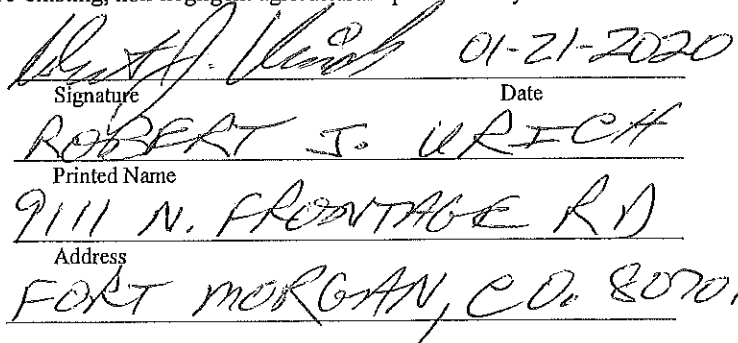 Robert J. Urich 01-21-2020
Signature Date
ROBERT J. URICH
Printed Name
9111 N. FRONTAGE RD
Address
FORT MORGAN, CO. 8070